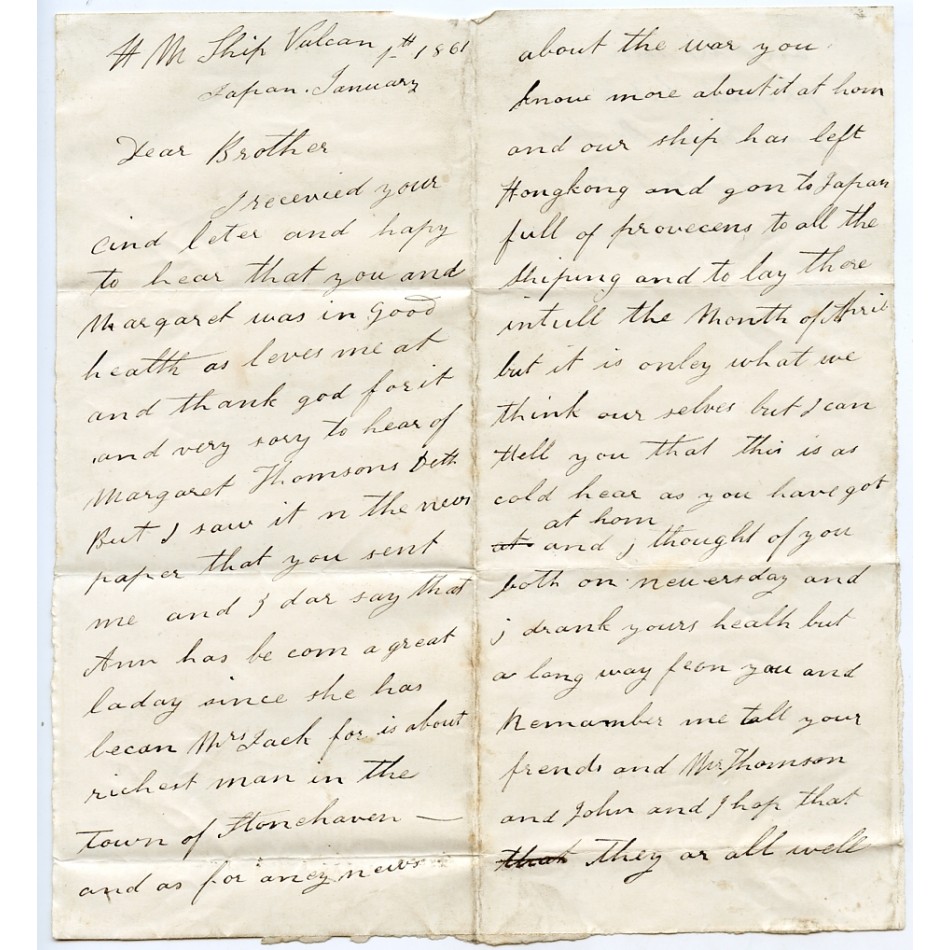 H M Ship Vulcan 1th 1861
Japan. January
Dear Brother
I recevied your
cind leter and hapy
to hear that you and
Margaret was in good
health as leves me at
and thank god for it
and very sory to hear of
Margaret Thomsons Deth
But I saw it n the news
paper that you sent
me and I dar say that
Ann has be com a great
laday since she has
becan Mrs Jack for is about
richest man in the
Town of Stonehaven —
and as for aney news
about the war you
know more about it at hom
and our ship has left
Hongkong and gon to Japan
full of provecens to all the
Shiping and to lay there
intull the Month of April
but it is onley what we
think our selves but I can
tell you that this is as
cold hear as you have got
at hom
at and j thought of you
both on newersday and
j drank yours sheath but
a long way feon you and
Remamber me toll your
frends and Mr Thomson
and John and I hop that
that they ar all well